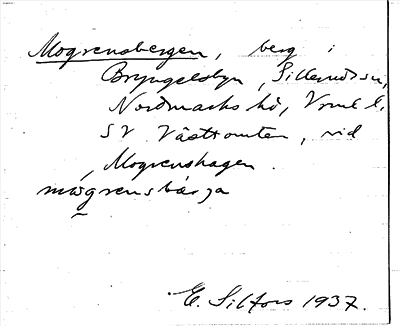 Mogrensbergen, berg i
Bryngelsbyn, Sillerud sn,
Nordmarks hd, Vrml l.
SV Västtomten, vid
Mogrenshagen.
mogrensbärja
E. Silfors 1937.